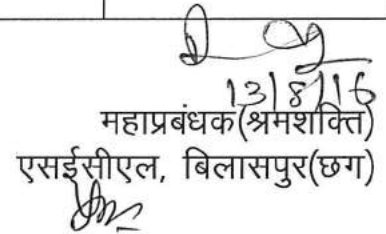 13/8/16
महाप्रबंधक(श्रमशक्ति)
एसईसीएल, बिलासपुर(छग)